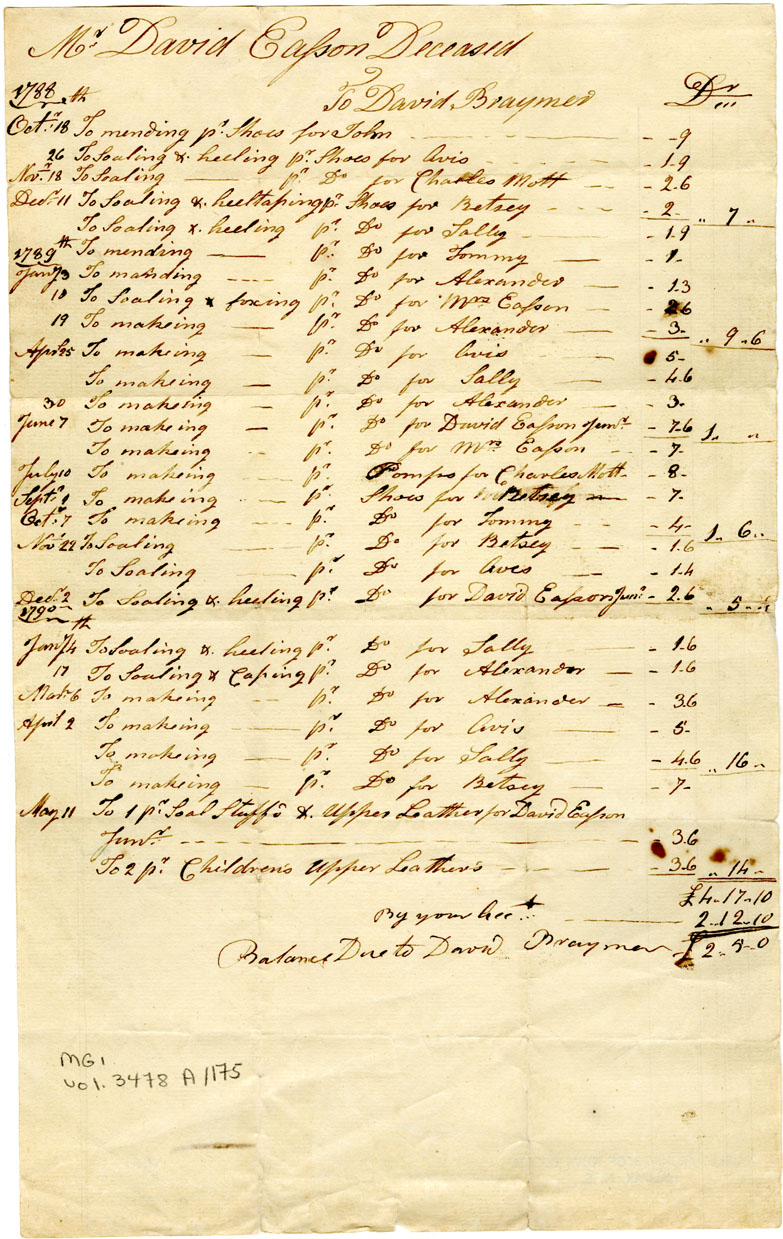 Mr David Easson Deceased
1788 To David Braymer Dr
Octr 18th To mending pr Shoes for John - 9
26 To Soaling & heeling pr Shoes for Avis - 1.9
Novr 18 To Soaling pr Do for Charles Mott - 2.6
Decr 11 To Soaling & heeltaping pr Shoes for Betsey - 2 - " 7 "
To Soaling & heeling pr Do for Sally - 1.9
1789 To mending pr Do for Tommy - 1 -
Jany 3th To manding pr Do for Alexander - 1.3
10 To Soaling & foxing pr Do for Mrs Easson - 2.6
19 To makeing pr Do for Alexander - 3 - " 9 " 6
Apr 25 To makeing pr Do for Avis 5 -
To makeing pr Do for Sally - 4.6
30 To makeing pr Do for Alexander - 3 -
June 7 To makeing pr Do for David Easson Junr - 7.6 1 " "
To makeing pr Do for Mrs Easson - 7 -
July 10 To makeing pr Pomps for Charles Mott - 8 -
Septr 9 To makeing pr Shoes for Betsey - 7 -
Octr 7 To makeing pr Do for Tommy - 4 - 1 " 6 "
Novr 22 To Soaling pr Do for Betsey - 1.6
To Soaling pr Do for Avis - 1.4
Decr 2 To Soaling & heeling pr Do for David Easson Junr - 2.6 " 5 "
1790
Jany 4th To Soaling & heeling pr Do for Sally - 1.6
17 To Soaling & Caping pr Do for Alexander - 1.6
Mar 6 To makeing pr Do for Alexander - 3.6
April 2 To makeing pr Do for Avis - 5 -
To makeing pr Do for Sally - 4.6 " 16 "
To makeing pr Do for Betsey - 7 -
May 11 To 1 pr Soal Stuff & Upper Leather for David Easson
Junr - 3.6
To 2 pr Children's Upper Leathers - 3.6 " 14 "
£4 " 17 " 10
By your Acct 2 " 12 " 10
Balance Due to David Braymer £2 " 5 " 0
MG1
vol. 3478 A/175